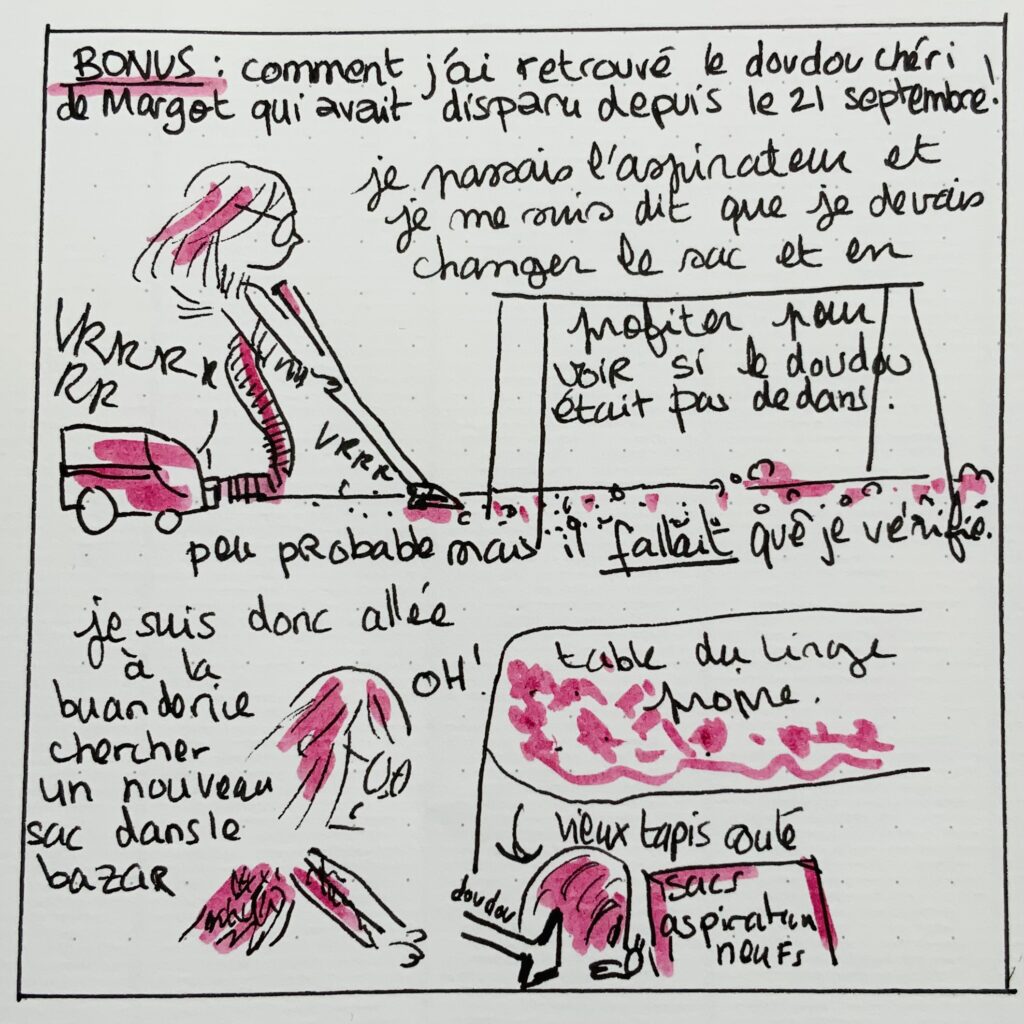 BONUS : comment j'ai retrouvé le doudou chéri
de Margot qui avait disparu depuis le 21 septembre!
je passais l'aspirateur et
je me suis dit que je devais
changer le sac et en
profiter pour
voir si le doudou
était pas dedans.
VRRRR
RR
VRRR
peu probable mais il fallait que je vérifie.
je suis donc allée
à la
buanderie
chercher
un nouveau
sac dans le
bazar
OH!
table du linge
propre.
vieux tapis roulé
doudou
sacs
aspirateur
neufs